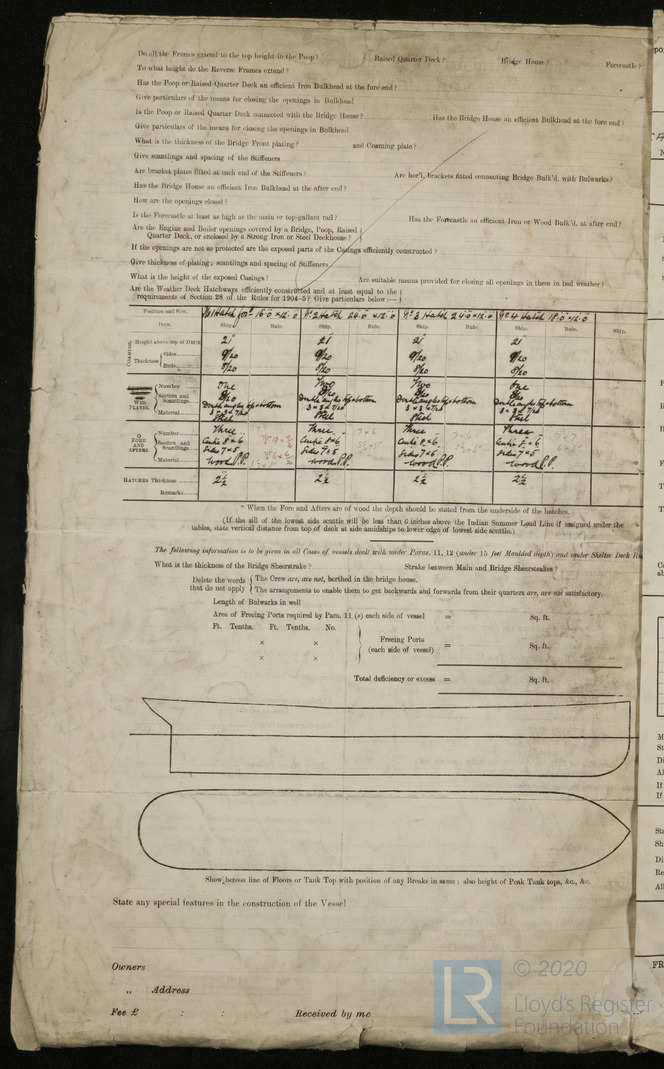 Do all the Frames extend to the top height in the Poop? Raised Quarter Deck? Bridge House? Forecastle?
To what height do the Reverse Frames extend?
Has the Poop or Raised Quarter Deck an efficient Iron Bulkhead at the fore end?
Give particulars of the means for closing the openings in Bulkhead
Is the Poop or Raised Quarter Deck connected with the Bridge House? Has the Bridge House an efficient Bulkhead at the fore end?
Give particulars of the means for closing the openings in Bulkhead
What is the thickness of the Bridge Front plating? and Coaming plate?
Give scantlings and spacing of the Stiffeners
Are bracket plates fitted at each end of the Stiffeners? Are hor'l. brackets fitted connecting Bridge Bulk'd. with Bulwarks?
Has the Bridge House an efficient Iron Bulkhead at the after end?
How are the openings closed?
Is the Forecastle at least as high as the main or top-gallant rail? Has the Forecastle an efficient Iron or Wood Bulk'd. at after end?
Are the Engine and Boiler openings covered by a Bridge, Poop, Raised
Quarter Deck, or enclosed by a Strong Iron or Steel Deckhouse?
If the openings are not so protected are the exposed parts of the Casings efficiently constructed?
Give thickness of plating; scantlings and spacing of Stiffeners
What is the height of the exposed Casings? Are suitable means provided for closing all openings in them in bad weather?
Are the Weather Deck Hatchways efficiently constructed and at least equal to the
requirements of Section 28 of the Rules for 1904-5? Give particulars below:—
Position and Size. No 1 Hatch 16.0 × 12.0 No 2 Hatch 24.0 × 12.0 No 3 Hatch 24.0 × 12.0 No 4 Hatch 18.0 × 12.0
Item. Ship. Rule. Ship. Rule. Ship. Rule. Ship. Rule. Ship.
COAMING. Height above top of DECK 21 21 21 21
Thickness Sides 9/20 9/20 9/20 9/20
Ends 9/20 9/20 9/20 9/20
WEB PLATES. Number One Two Two One
Section and Scantlings. Double angles top & bottom Double angles top & bottom Double angles top & bottom Double angles top & bottom
Material Steel Steel Steel Steel
FORE AND AFTERS. Number Three Three Three Three
Section and Scantlings. Centre 8 × 6 Centre 9 × 6 Centre 8 × 6
Sides 7 × 5 Sides 7 × 5 Sides 7 × 5 Sides 7 × 5
Material wood P.P. wood P.P. wood P.P. wood P.P.
HATCHES Thickness 2½ 2½ 2½ 2½
Remarks
* When the Fore and Afters are of wood the depth should be stated from the underside of the hatches.
(If the sill of the lowest side scuttle will be less than 6 inches above the Indian Summer Load Line if assigned under the
tables, state vertical distance from top of deck at side amidships to lower edge of lowest side scuttle.)
The following information is to be given in all Cases of vessels dealt with under Paras. 11, 12 (under 15 feet Moulded depth) and under Shelter Deck
What is the thickness of the Bridge Sheerstrake? Strake between Main and Bridge Sheerstrakes?
Delete the words that do not apply The Crew are, are not, berthed in the bridge house.
The arrangements to enable them to get backwards and forwards from their quarters are, are not satisfactory.
Length of Bulwarks in well
Area of Freeing Ports required by Para. 11 (e) each side of vessel = Sq. ft.
Ft. Tenths. Ft. Tenths. No.
× × Freeing Ports
(each side of vessel) = Sq. ft.
× ×
Total deficiency or excess = Sq. ft.
Show hereon line of Floors or Tank Top with position of any Breaks in same; also height of Peak Tank tops, &c., &c.
State any special features in the construction of the Vessel
Owners
„ Address
Fee £ : : Received by me
LR © 2020
Lloyd's Register
Foundation